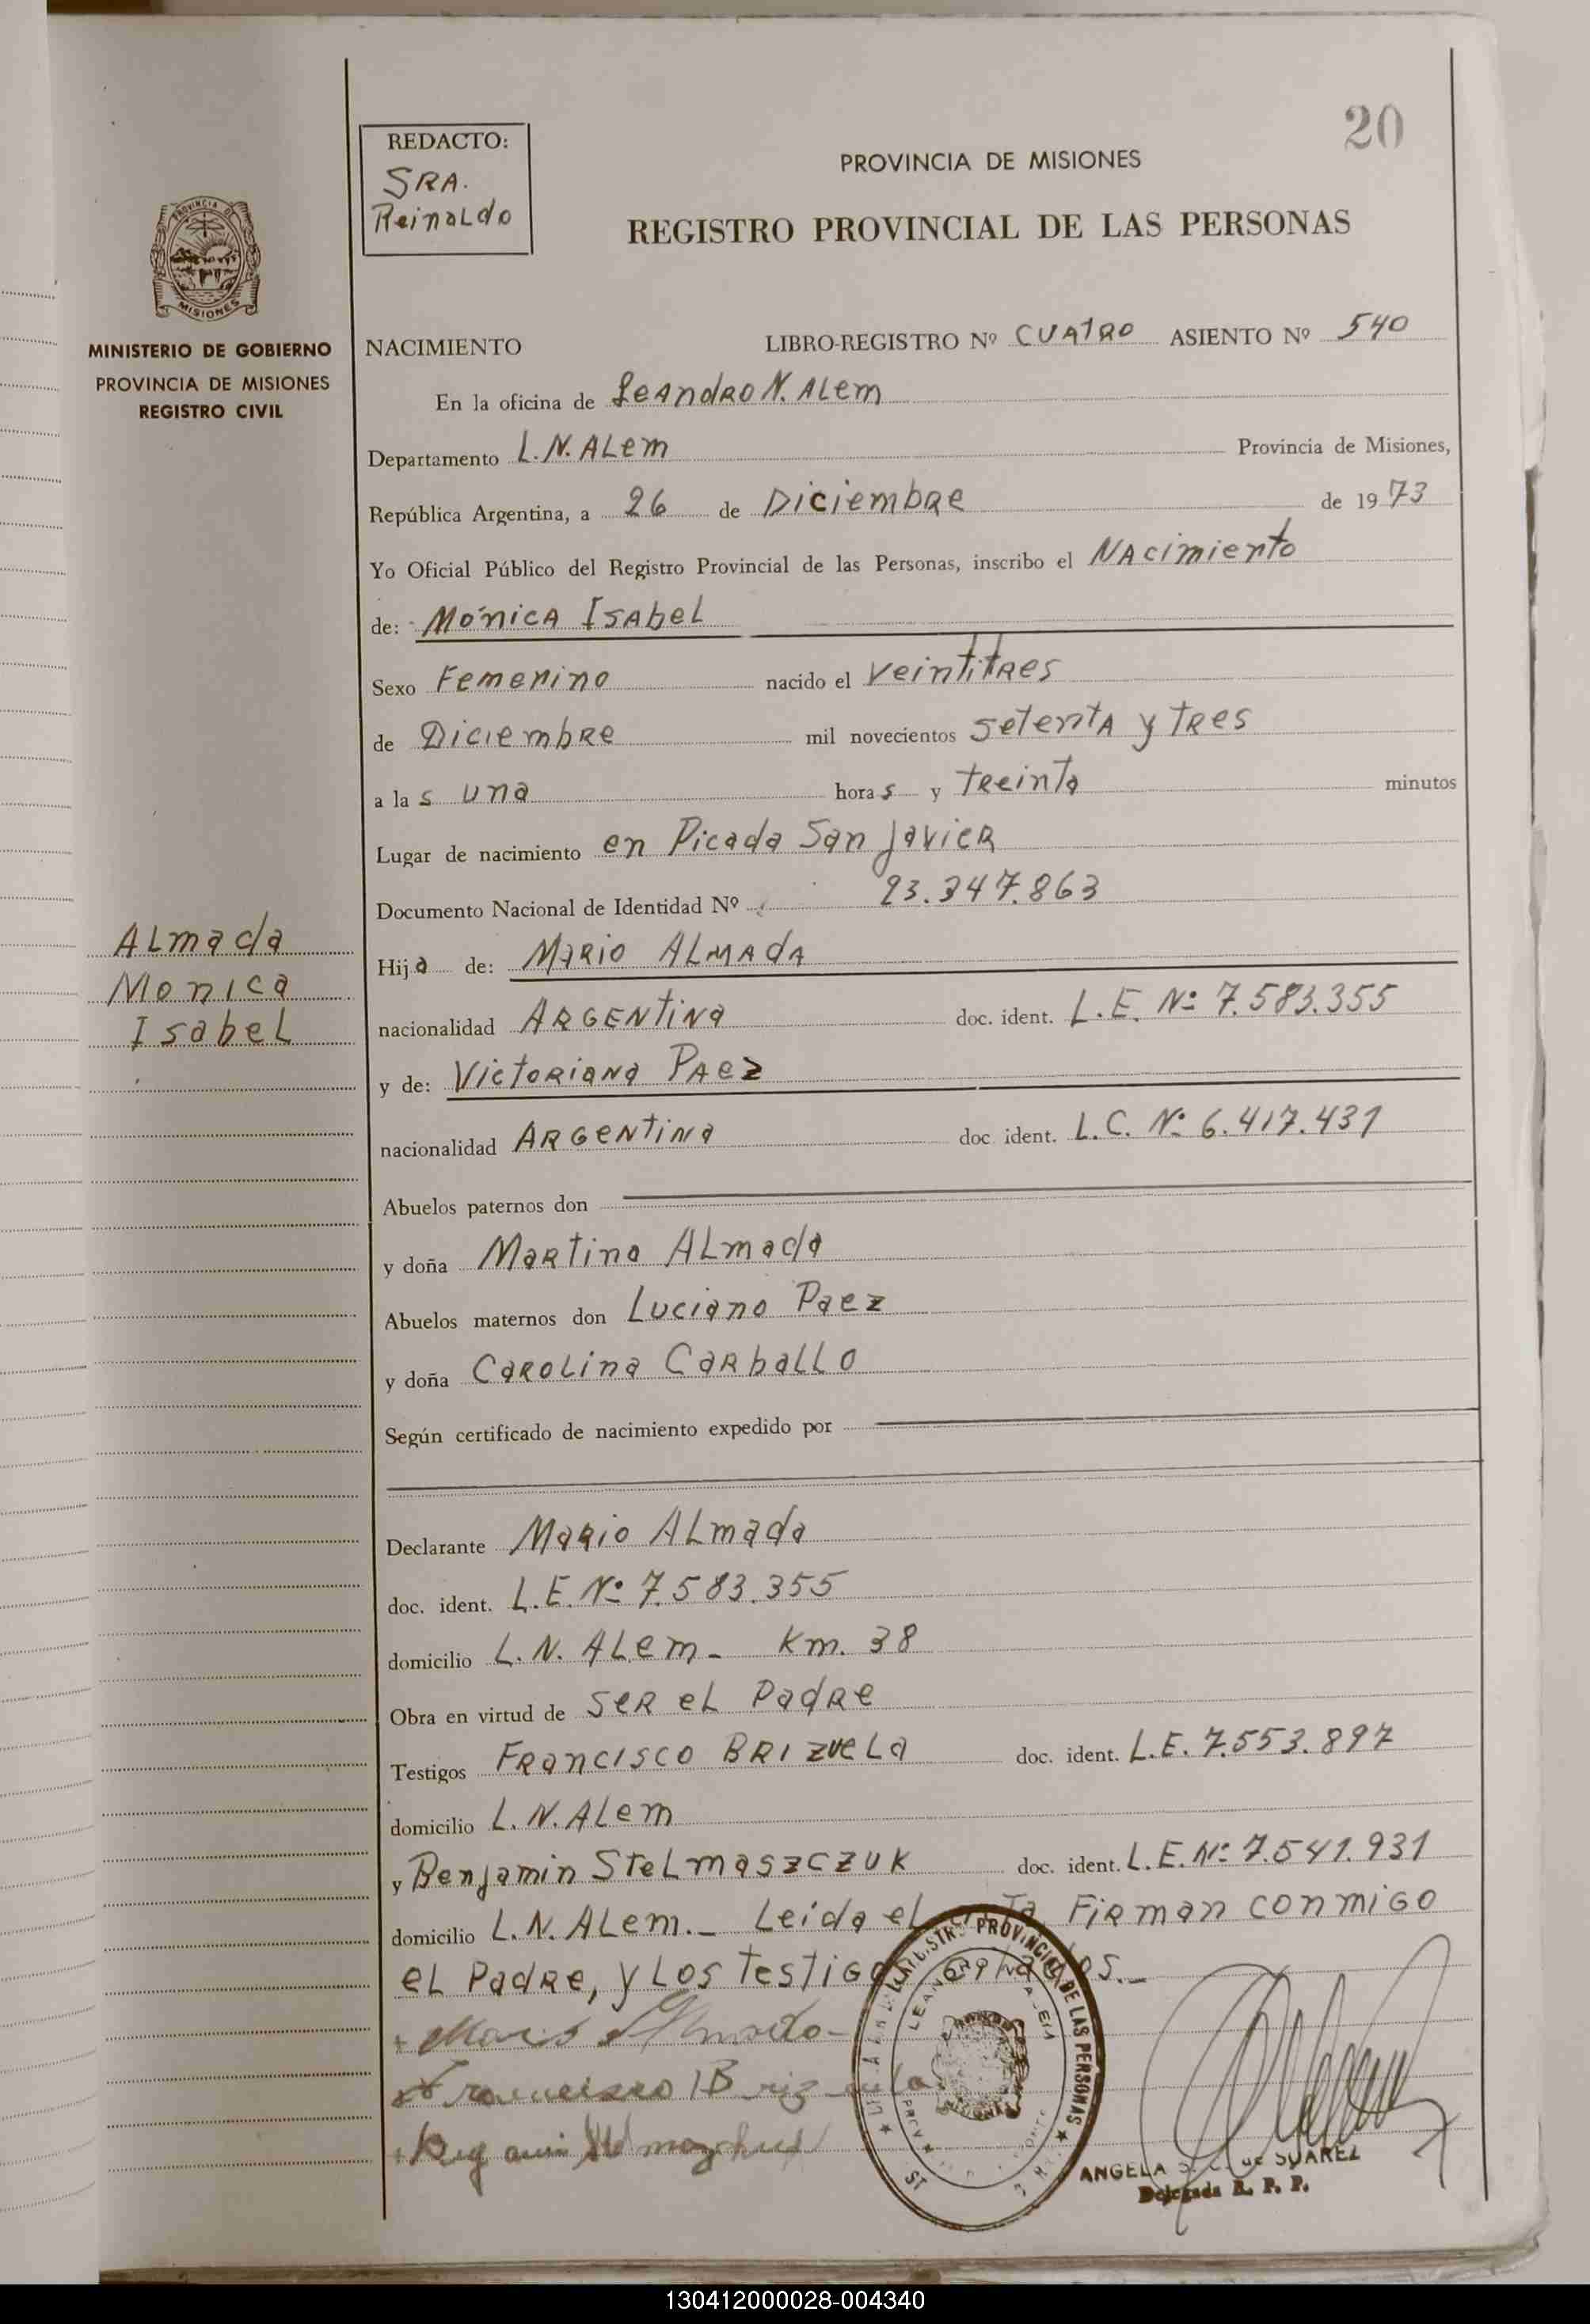 20
REDACTO:
SRA.
Reinaldo
PROVINCIA DE MISIONES
REGISTRO PROVINCIAL DE LAS PERSONAS
PROVINCIA DE
MISIONES
MINISTERIO DE GOBIERNO
PROVINCIA DE MISIONES
REGISTRO CIVIL
NACIMIENTO LIBRO-REGISTRO Nº CUATRO ASIENTO Nº 540
En la oficina de Leandro N. Alem
Departamento L.N. Alem Provincia de Misiones,
República Argentina, a 26 de Diciembre de 1973
Yo Oficial Público del Registro Provincial de las Personas, inscribo el Nacimiento
de: Mónica Isabel
Sexo Femenino nacido el veintitres
de Diciembre mil novecientos setenta y tres
a las una horas y treinta minutos
Lugar de nacimiento en Picada San Javier
Documento Nacional de Identidad Nº 23.347.863
Almada
Monica
Isabel
Hija de: Mario Almada
nacionalidad Argentina doc. ident. L.E. Nº 7.583.355
y de: Victoriana Paez
nacionalidad Argentina doc. ident. L.C. Nº 6.417.431
Abuelos paternos don
y doña Martina Almada
Abuelos maternos don Luciano Paez
y doña Carolina Carballo
Según certificado de nacimiento expedido por
Declarante Mario Almada
doc. ident. L.E. Nº 7.583.355
domicilio L.N. Alem - Km. 38
Obra en virtud de ser el Padre
Testigos Francisco Brizuela doc. ident. L.E. 7.553.897
domicilio L.N. Alem
y Benjamin Stelmaszczuk doc. ident. L.E. Nº 7.541.931
domicilio L.N. Alem.- Leida el Acta Firman conmigo
el Padre, y los testigos
Mario Almada
Francisco Brizuela
PROVINCIAL DE LAS PERSONAS
ANGELA de SUAREZ
Delegada R. P. P.
130412000028-004340